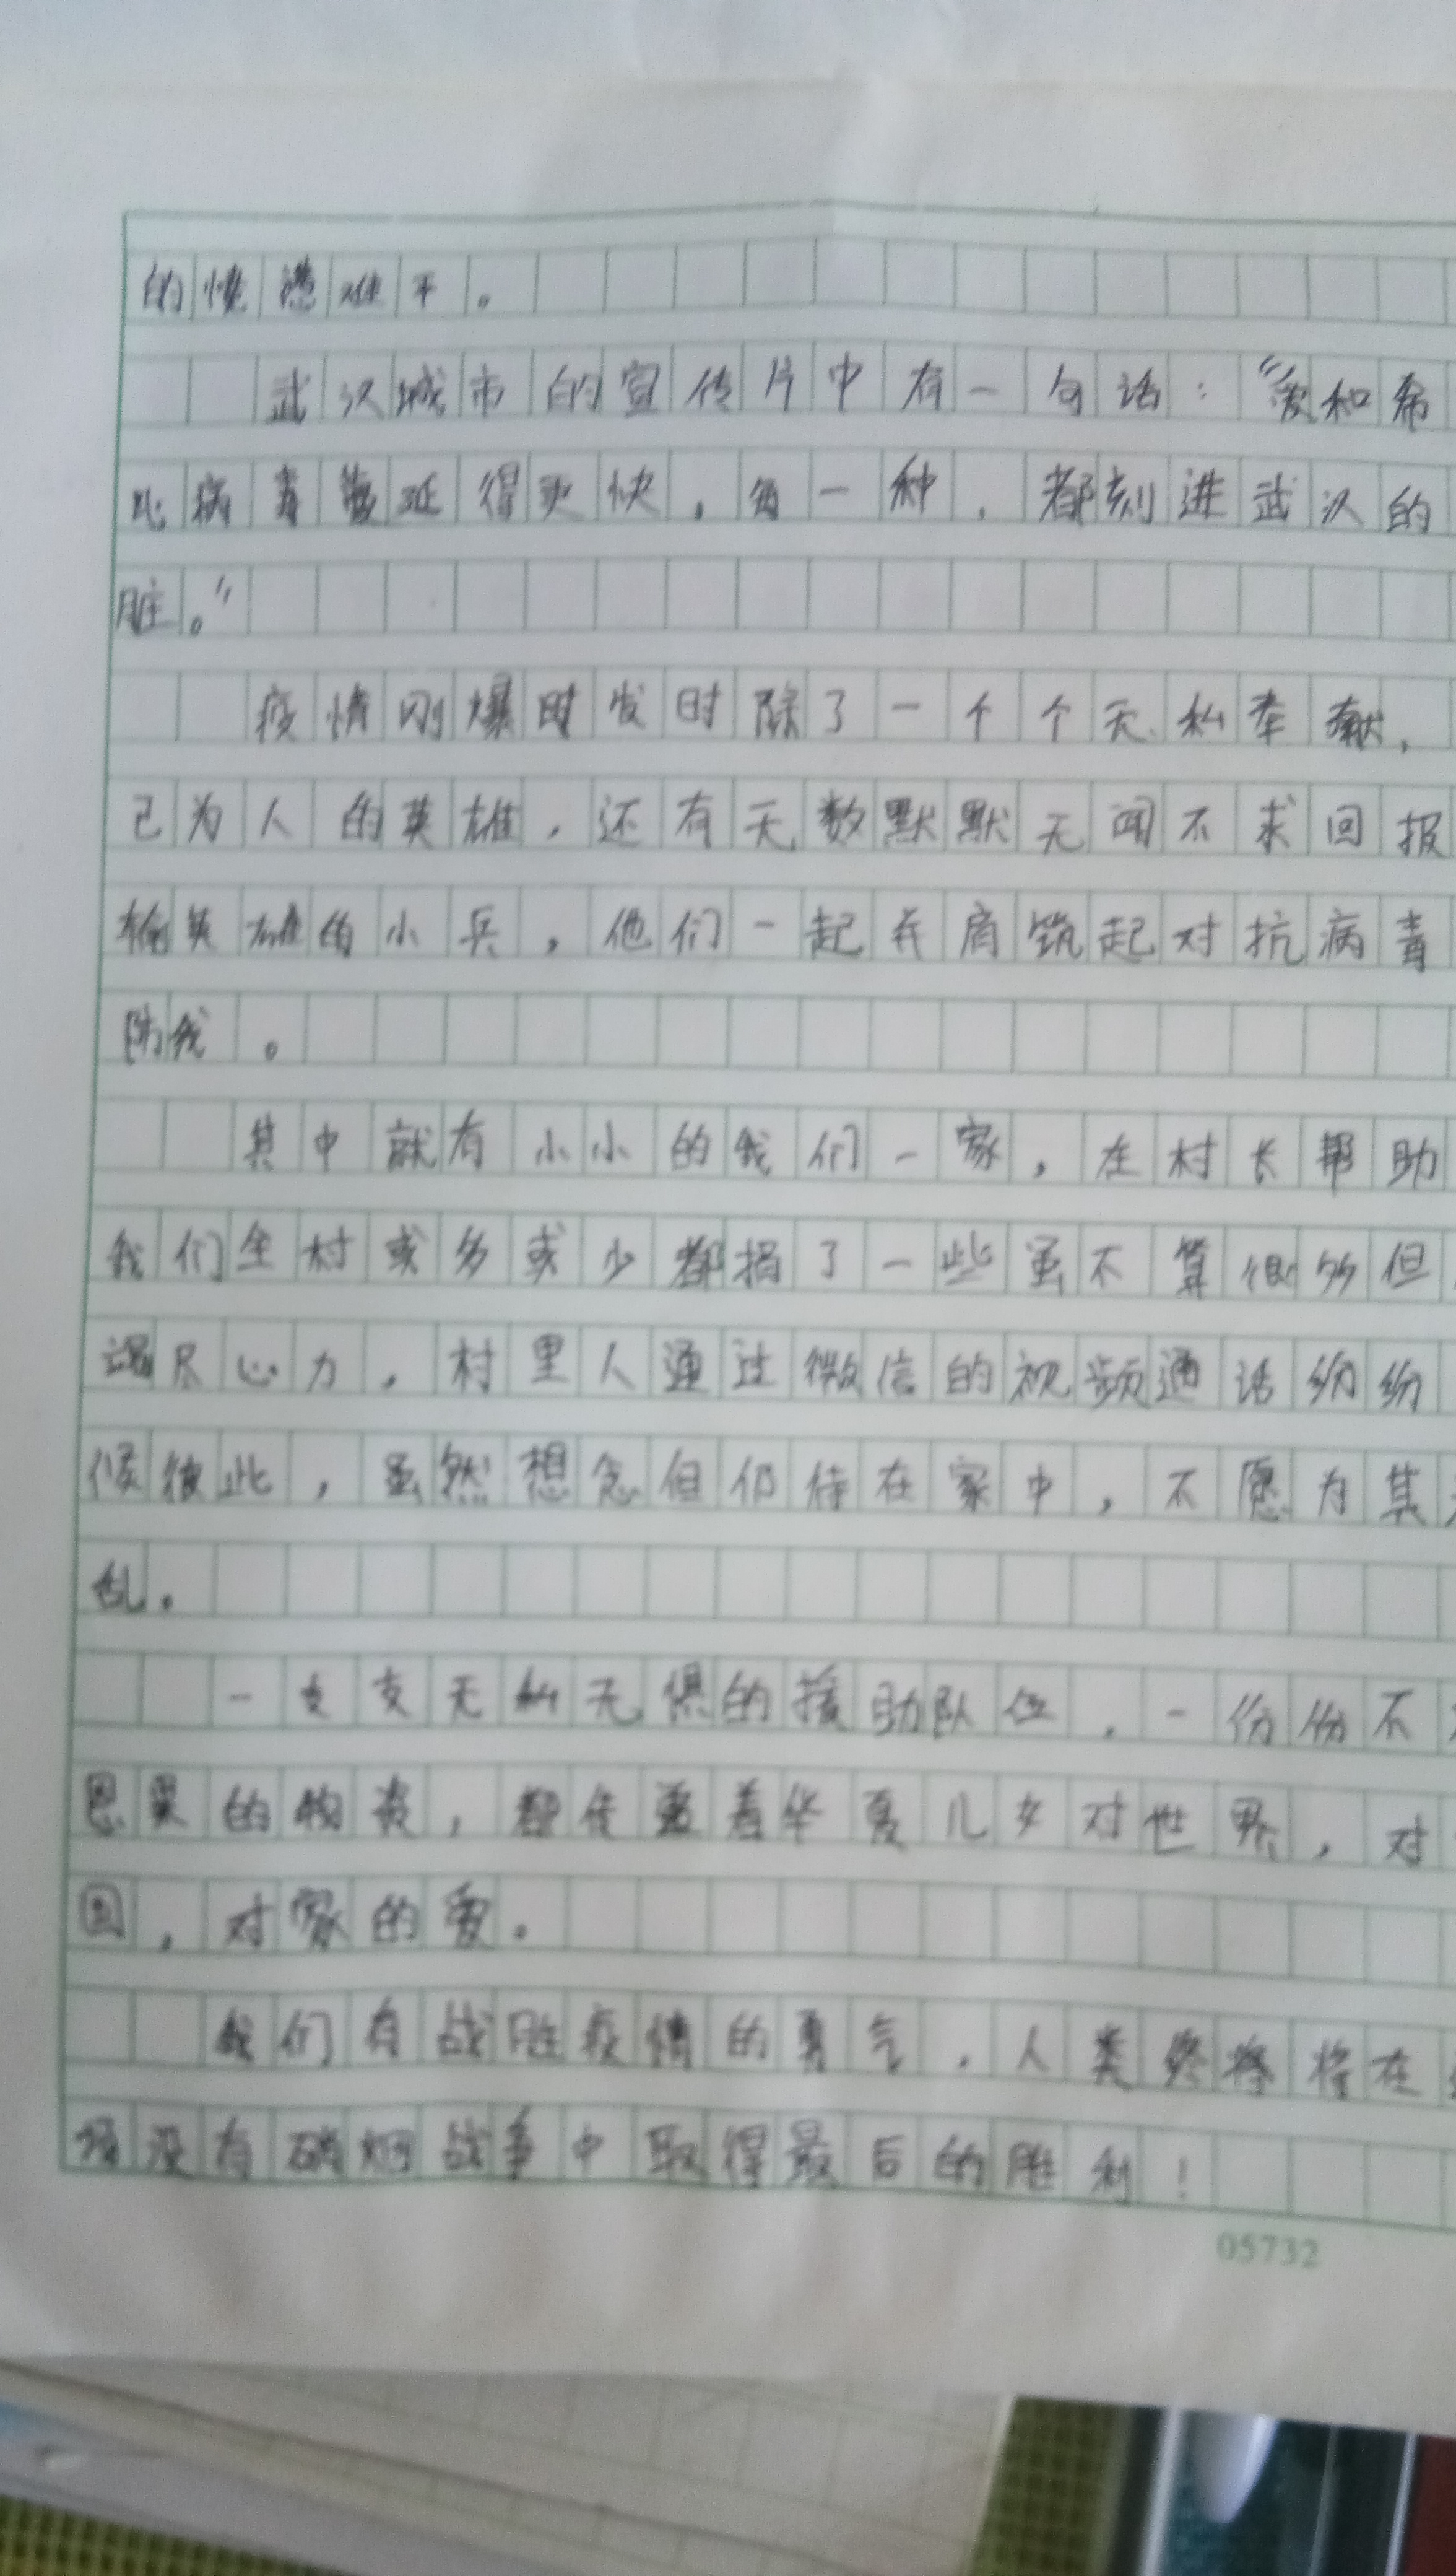 的愤懑难平。
武汉城市的宣传片中有一句话：“爱和希
比病毒蔓延得更快，每一种，都刻进武汉的
脏。”
疫情刚爆时发时除了一个个无私奉献，
己为人的英雄，还有无数默默无闻不求回报
输英雄的小兵，他们一起并肩筑起对抗病毒
防线。
其中就有小小的我们一家，在村长帮助
我们全村或多或少都捐了一些虽不算很多但
竭尽心力，村里人通过微信的视频通话纷纷
候彼此，虽然想念但仍待在家中，不愿为其
乱。
一支支无私无惧的援助队伍，一份份不
思窠的物资，都传递着华夏儿女对世界，对
国，对家的爱。
我们有战胜疫情的勇气，人类终将将在
场没有硝烟战争中取得最后的胜利！
05732